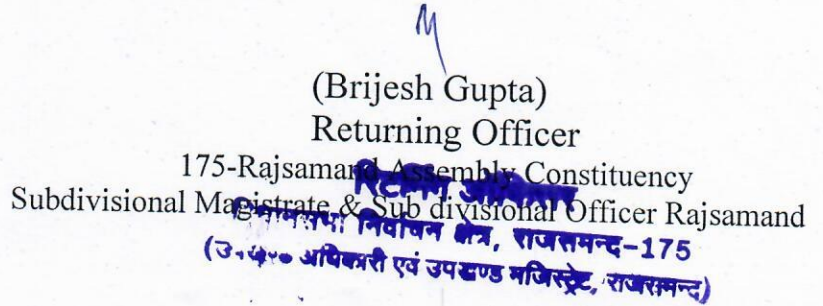 (Brijesh Gupta)
Returning Officer
175-Rajsamand Assembly Constituency
रिटर्निंग अधिकारी
Subdivisional Magistrate & Sub divisional Officer Rajsamand
विधानसभा निर्वाचन क्षेत्र, राजसमन्द-175
अधिकारी एवं उपखण्ड मजिस्ट्रेट, राजसमन्द)